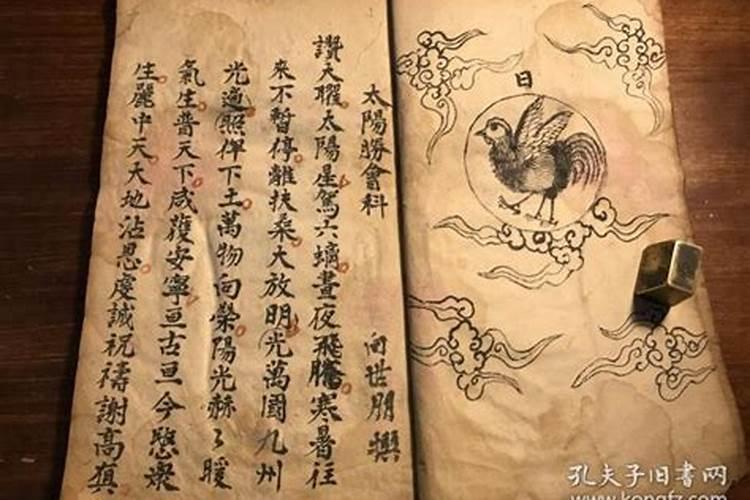 日
太陽勝會科 向世朋撰
讚天曜太陽星駕六螭晝夜飛騰寒暑往
來不暫停離扶桑大放明光萬國九州
光遍照俾下土萬物向榮陽光赫々暖
氣生普天下咸獲安寧亘古亘今愍衆
生麗中天天地沾恩虔誠祝禱謝高
孔夫子旧书网
www.kongfz.com